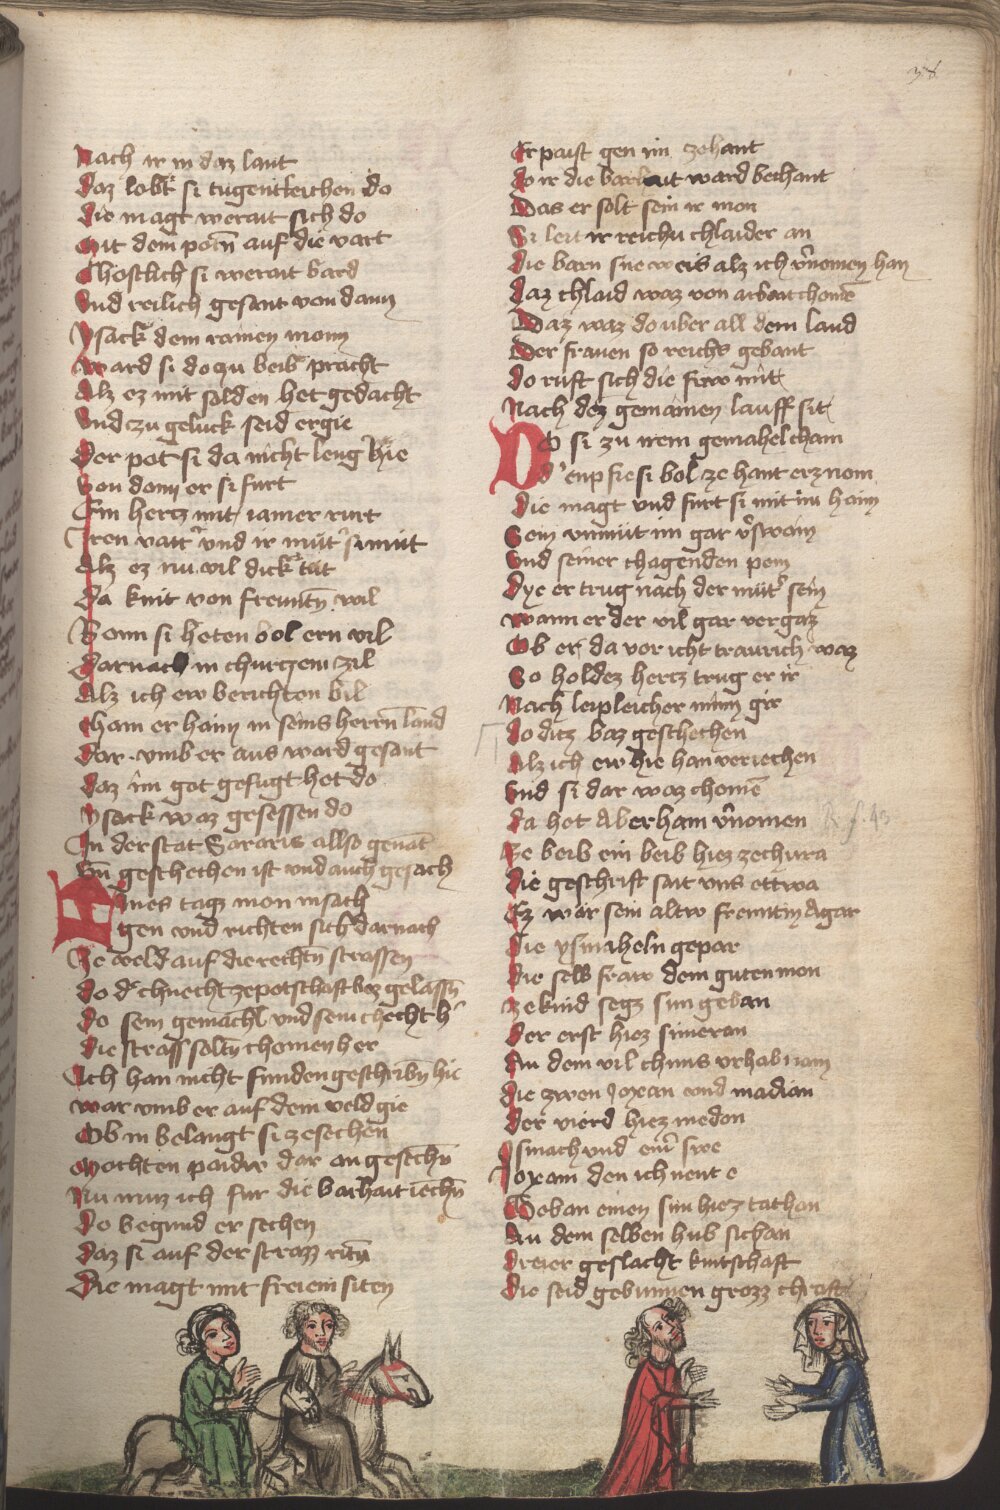 38
Nach ir in daz lant
Daz lobt si tugentleichen do
Die magt werait sich do
Mit dem potn auf die vart
Chostlich si werait bard
Und reilich gesant von dann
Ysack dem rainen mann
Ward si do zu beib pracht
Alz ez mit solden het gedacht
Und czu geluck seid ergie
Der pot si da nicht leng hie
Von dann er si furt
Ein hercz mit iamer rurt
Iren vatter und ir mut
Alz ez nu vil dick tut
Da kint von freuntn wil
Wann si heten bol ern vil
Darnach in churczem zil
Alz ich ew berichten bil
Cham er haim in seins herrn land
Dar umb er aus ward gesant
Daz im got gefugt het do
Ysack waz gesessen do
In der stat Gararis allso genant
Un geschehen ist und auch gesach
Eines tags mon in sach
gen und richten sich darnach
Ze veld auf die rechtn strassen
do der chnecht ze potschaft bez gelassn
Do sein gemachl und sein chnecht
Die strass soltn chomen her
Ich han nicht funden geschribn hie
war umb er auf dem veld gie
Ob in belangt si ze sechen
Mochten paidw dar an geschehn
Nu muz ich fur die barhait iechn
Do begund er sechen
Daz si auf der strazz ritn
Die magt mit freiem siten
Er paist gen im zehant
Do ir die barhait ward bechant
Das er solt sein ir mon
Si leit ir reichu chlaider an
Die barn sne weis alz ich vernomen han
Daz chlaid waz von arbait chome
Daz waz do uber all dem land
Der frauen so reichs gebant
Do ruft sich die frow mit
Nach dez gemainen lauff sit
Do si zu irem gemahel cham
Der enpfie si bol ze hant er nom
Die magt und furt si mit im haim
Sein unmut im gar verswain
Und seiner chagenden pein
Dye er trug nach der muter sein
Wann er der vil gar vergaz
Ob er da vor icht traurich waz
So holdez hercz trug er ir
Nach leipleicher minn gir
Do ditz baz geschechen
Alz ich ew hie han veriechen
Und si dar waz chome
Da het Aberham vernomen
Ze beib ein beib hiez zechura
Die geschrift sait uns ettwa
Ez wär sein altw freuntin Agar
Die ysmaheln gepar
Die selb fraw dem guten mon
Ze kind segs sun geban
Der erst hiez simeron
An dem vil chuns urhab nam
Die zwen Joxan und madian
Der vierd hiez medon
Ismach und emer swe
Joxam den ich nent e
Geban einen sun hiez tathan
An dem selben hub sich an
Dreier geslacht kuntschaft
Die seid gebunnen grozz chraft